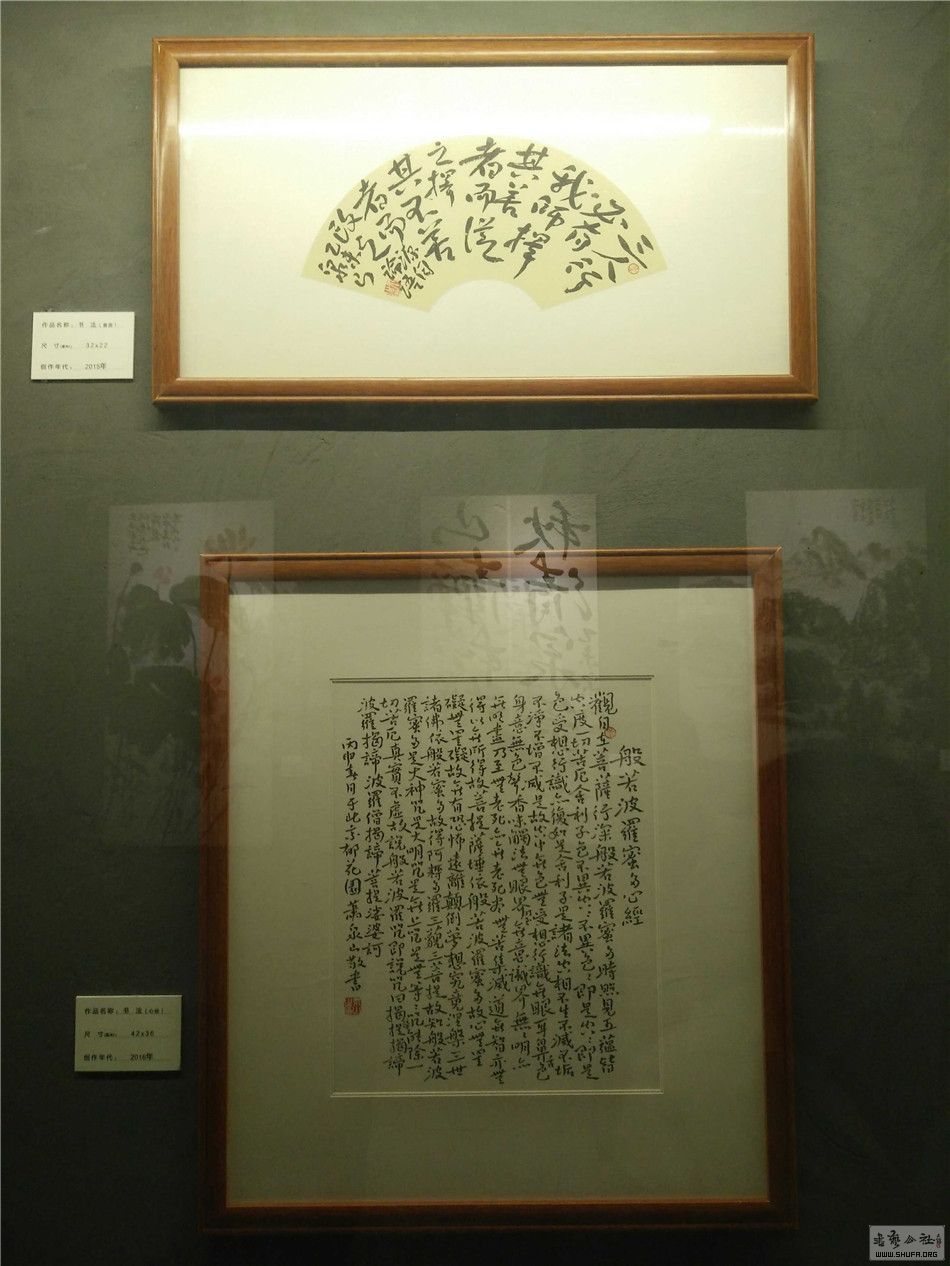 三人
行必
我師有
其善擇
者而從
之擇
其不善
者而
改之
源自
論語
乙未
作品名称：书 法（扇面）
尺 寸(厘米)： 32x22
创作年代： 2015年
般若波羅蜜多心經
觀自在菩薩行深般若波羅蜜多時照見五蘊皆
空度一切苦厄舍利子色不異空空不異色色即是空空即是
色受想行識亦復如是舍利子是諸法空相不生不滅不垢
不淨不增不減是故空中無色無受想行識無眼耳鼻舌
身意無色聲香味觸法無眼界無意識界無無明亦
無明盡乃至無老死亦無老死盡無苦集滅道無智亦無
得以無所得故菩提薩埵依般若波羅蜜多故心無罣
礙無罣礙故無有恐怖遠離顛倒夢想究竟涅槃三世
諸佛依般若蜜多故得阿耨多羅三藐三菩提故知般若波
羅蜜多是大神咒是大明咒是無上咒是無等等咒能除一
切苦厄真實不虛故說般若波羅咒即說咒曰揭諦揭諦
波羅揭諦波羅僧揭諦菩提娑婆訶
丙申春月于北京都花園蕭泉山敬書
作品名称：书 法（心经）
尺 寸(厘米)： 42x36
创作年代： 2016年
WWW.SHUFA.ORG